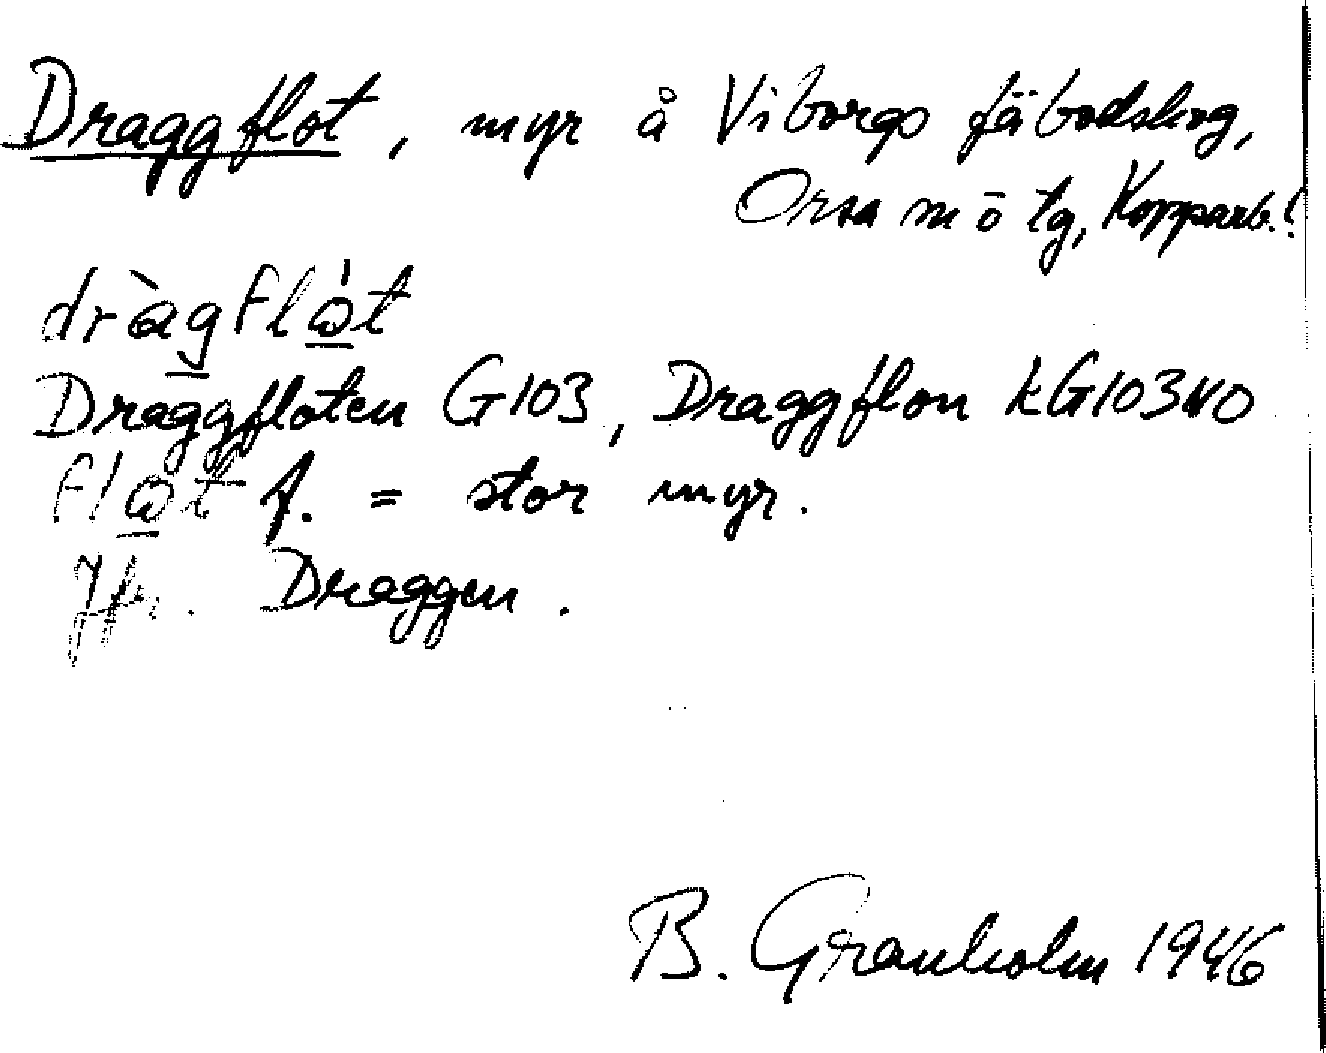 Draggflot, myr å Viborgs fäbodskog,
Orsa m ö tg, Kopparb. l
dràgflὼt
Draggfloten G103, Draggflon kG103NO
flωt f. = stor myr.
Jfr. Draggen.
B. Granholm 1946